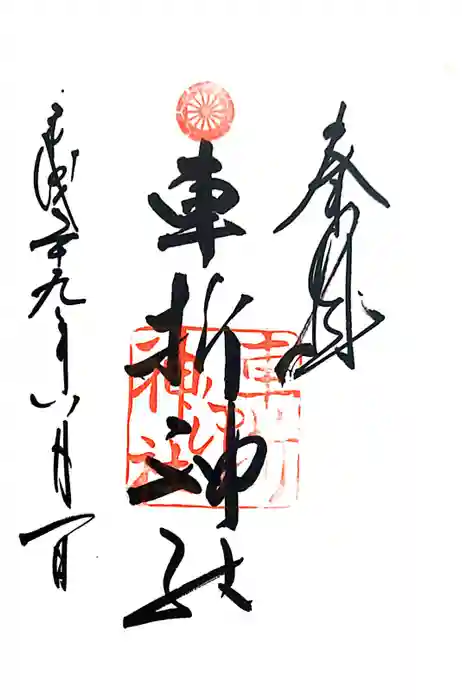 奉拝
車折神社
平成二十九年六月一日
車折
神社